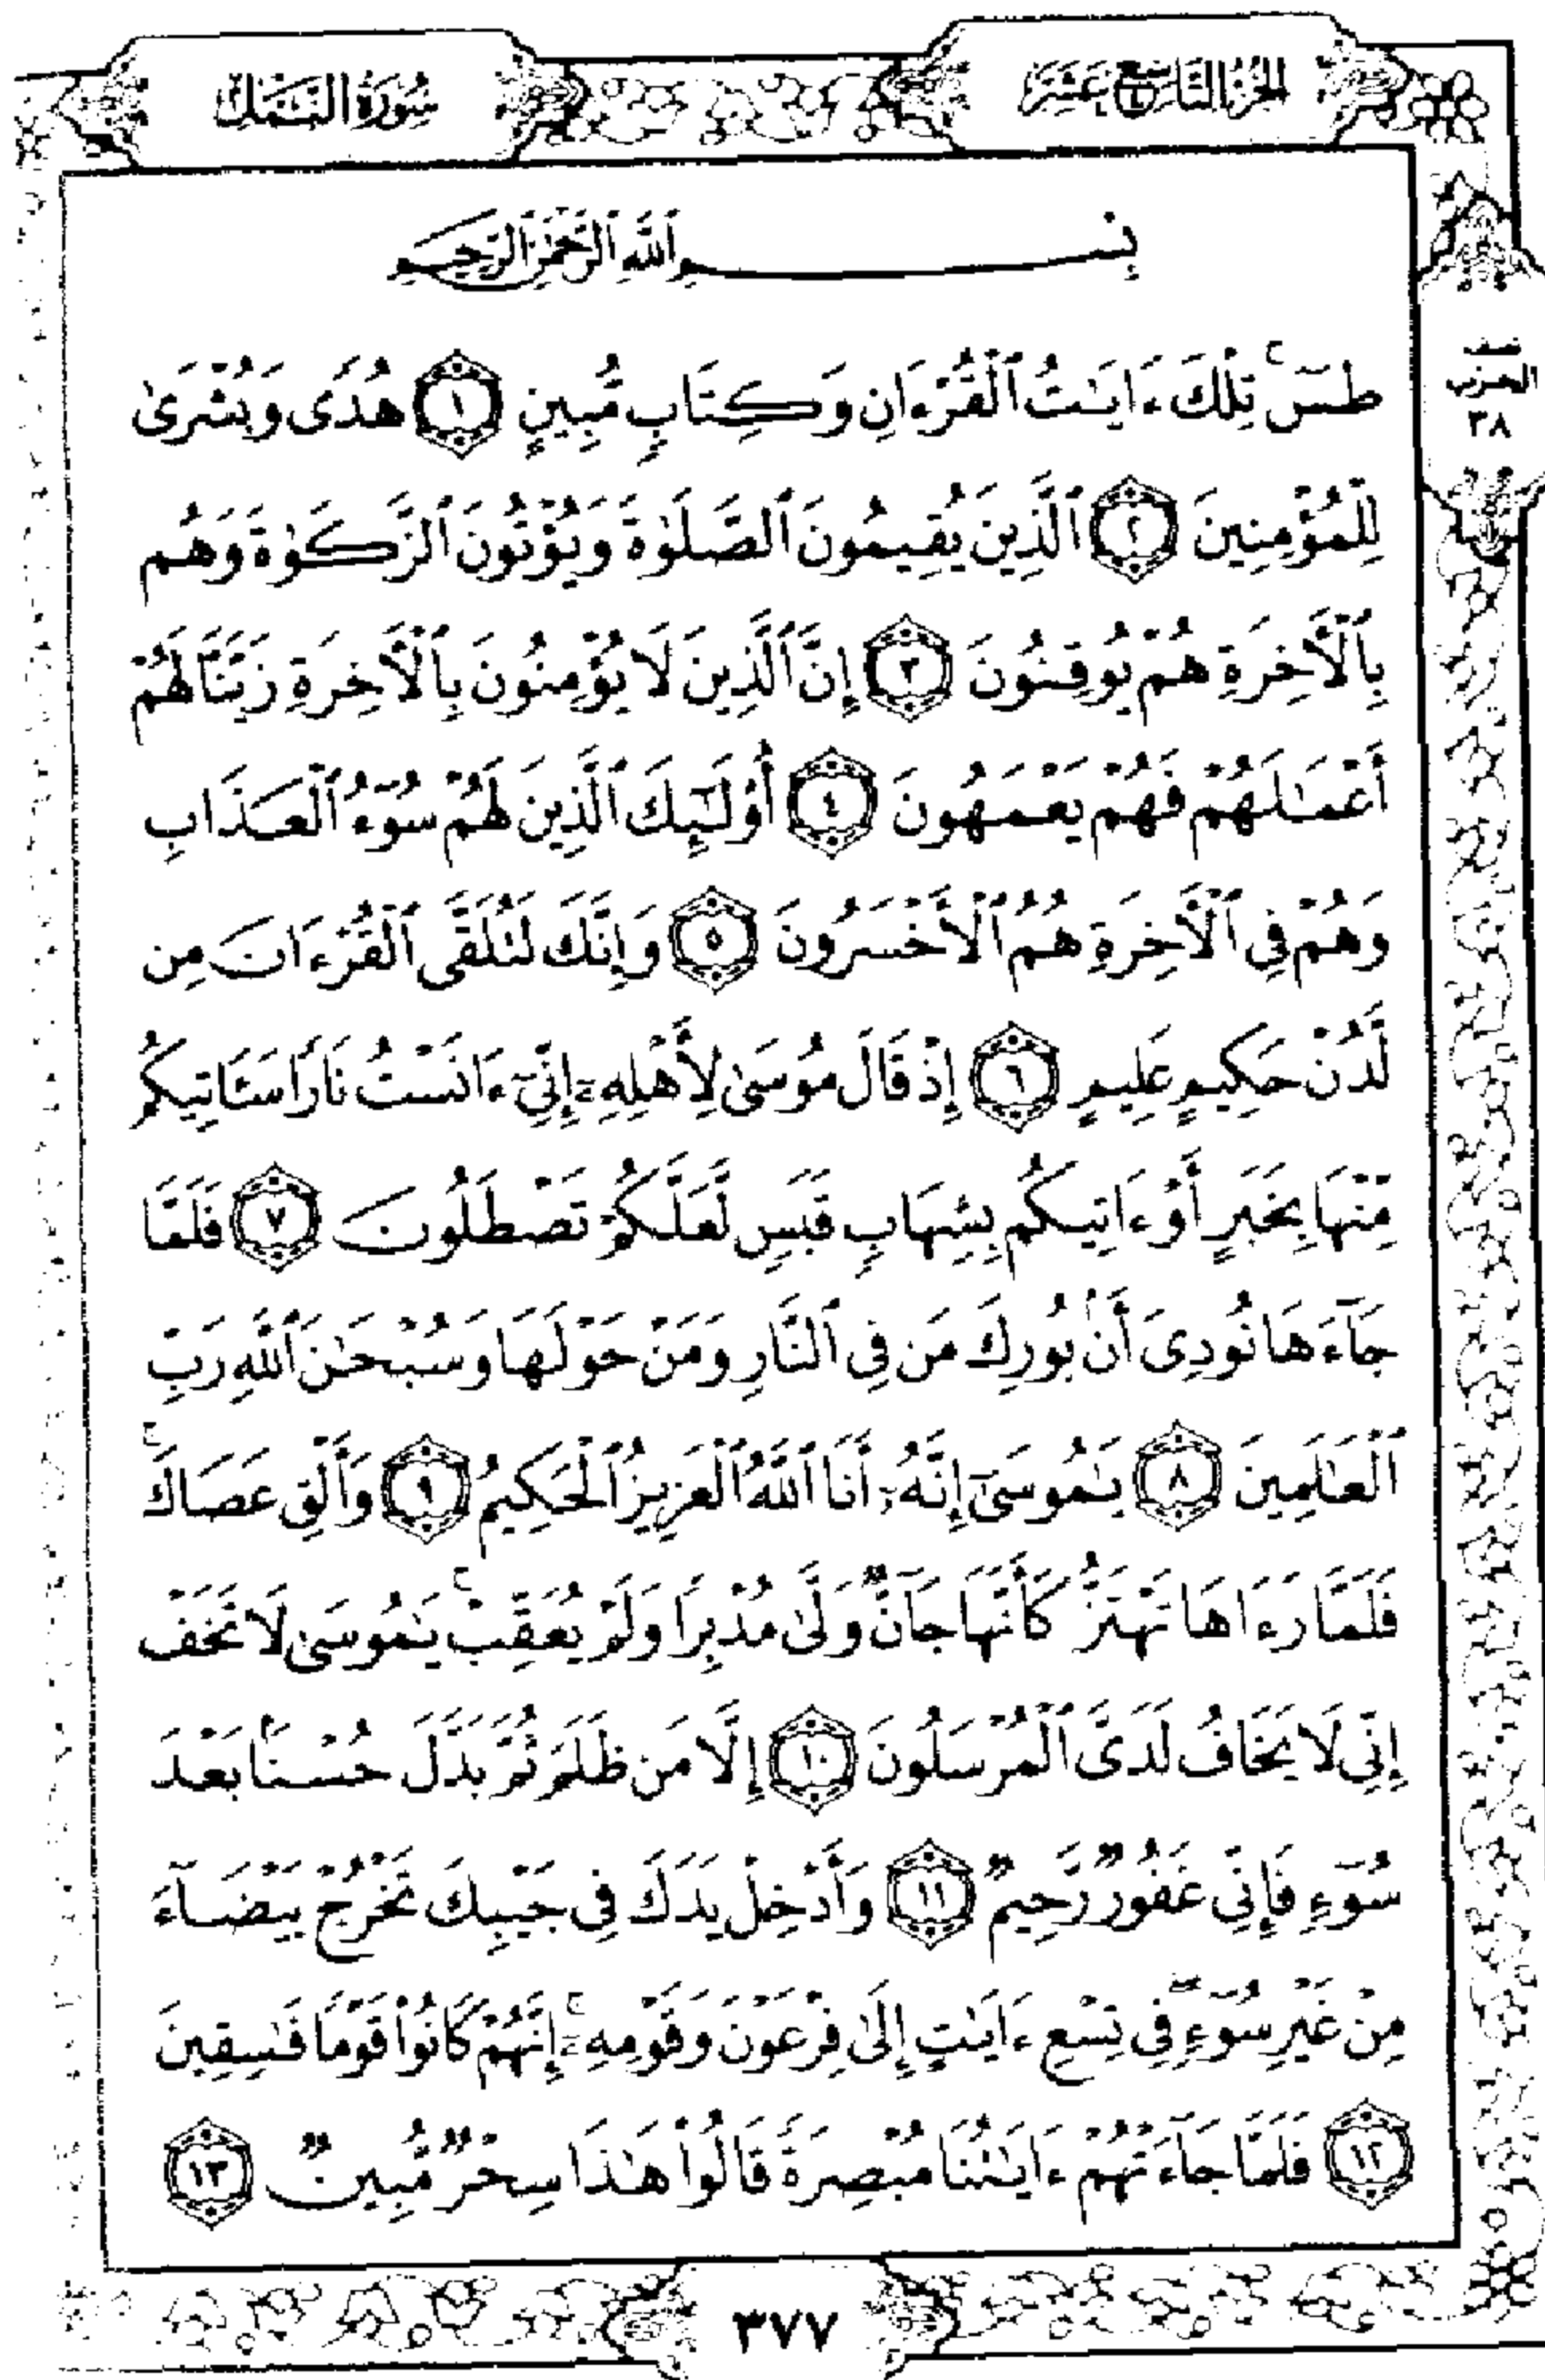 الجزء التاسع عشر
سورة النمل
بِسْمِ ٱللَّهِ ٱلرَّحْمَٰنِ ٱلرَّحِيمِ
نصف
الحزب
٣٨
طسٓ ۚ تِلْكَ ءَايَٰتُ ٱلْقُرْءَانِ وَكِتَابٍ مُّبِينٍ ١ هُدًى وَبُشْرَىٰ
لِلْمُؤْمِنِينَ ٢ ٱلَّذِينَ يُقِيمُونَ ٱلصَّلَوٰةَ وَيُؤْتُونَ ٱلزَّكَوٰةَ وَهُم
بِٱلْأَخِرَةِ هُمْ يُوقِنُونَ ٣ إِنَّ ٱلَّذِينَ لَا يُؤْمِنُونَ بِٱلْأَخِرَةِ زَيَّنَّا لَهُمْ
أَعْمَٰلَهُمْ فَهُمْ يَعْمَهُونَ ٤ أُوْلَٰٓئِكَ ٱلَّذِينَ لَهُمْ سُوٓءُ ٱلْعَذَابِ
وَهُمْ فِى ٱلْأَخِرَةِ هُمُ ٱلْأَخْسَرُونَ ٥ وَإِنَّكَ لَتُلَقَّى ٱلْقُرْءَانَ مِن
لَّدُنْ حَكِيمٍ عَلِيمٍ ٦ إِذْ قَالَ مُوسَىٰ لِأَهْلِهِۦٓ إِنِّىٓ ءَانَسْتُ نَارًا سَـَٔاتِيكُم
مِّنْهَا بِخَبَرٍ أَوْ ءَاتِيكُم بِشِهَابٍ قَبَسٍ لَّعَلَّكُمْ تَصْطَلُونَ ٧ فَلَمَّا
جَآءَهَا نُودِىَ أَنۢ بُورِكَ مَن فِى ٱلنَّارِ وَمَنْ حَوْلَهَا وَسُبْحَٰنَ ٱللَّهِ رَبِّ
ٱلْعَٰلَمِينَ ٨ يَٰمُوسَىٰٓ إِنَّهُۥٓ أَنَا ٱللَّهُ ٱلْعَزِيزُ ٱلْحَكِيمُ ٩ وَأَلْقِ عَصَاكَ ۚ
فَلَمَّا رَءَاهَا تَهْتَزُّ كَأَنَّهَا جَآنٌّ وَلَّىٰ مُدْبِرًا وَلَمْ يُعَقِّبْ ۚ يَٰمُوسَىٰ لَا تَخَفْ
إِنِّى لَا يَخَافُ لَدَىَّ ٱلْمُرْسَلُونَ ١٠ إِلَّا مَن ظَلَمَ ثُمَّ بَدَّلَ حُسْنًۢا بَعْدَ
سُوٓءٍ فَإِنِّى غَفُورٌ رَّحِيمٌ ١١ وَأَدْخِلْ يَدَكَ فِى جَيْبِكَ تَخْرُجْ بَيْضَآءَ
مِنْ غَيْرِ سُوٓءٍ ۖ فِى تِسْعِ ءَايَٰتٍ إِلَىٰ فِرْعَوْنَ وَقَوْمِهِۦٓ ۚ إِنَّهُمْ كَانُوا۟ قَوْمًا فَٰسِقِينَ
١٢ فَلَمَّا جَآءَتْهُمْ ءَايَٰتُنَا مُبْصِرَةً قَالُوا۟ هَٰذَا سِحْرٌ مُّبِينٌ ١٣
٣٧٧